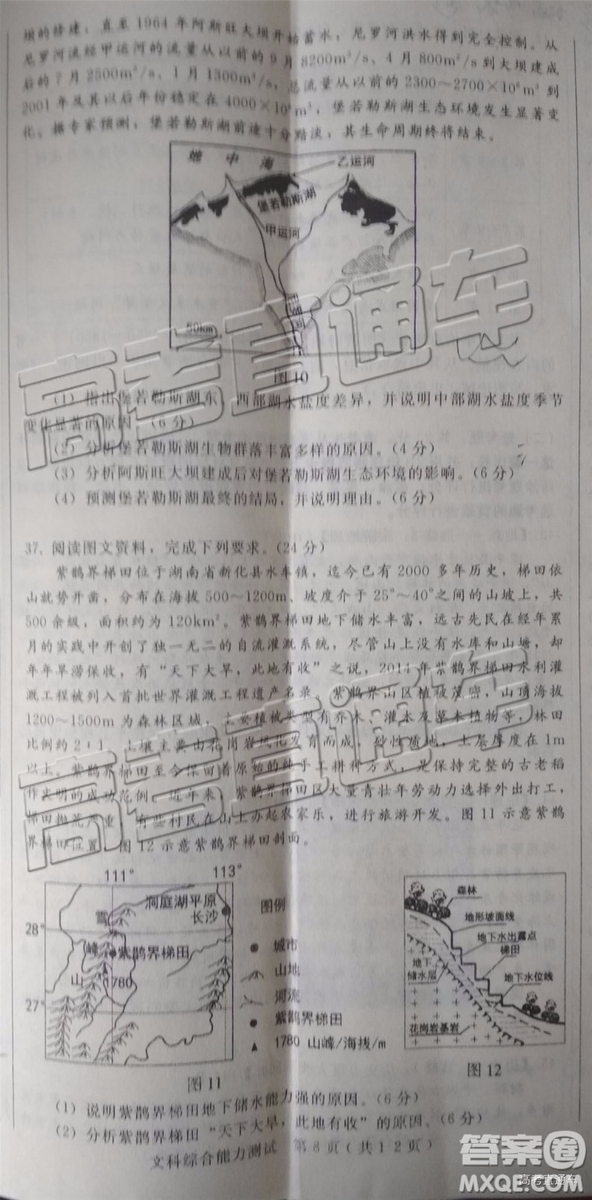 坝的修建，直至1964年阿斯旺大坝开始蓄水，尼罗河洪水得到完全控制。从
尼罗河流经甲运河的流量从以前的9月8200m³/s、4月800m³/s到大坝建成
后的7月2500m³/s、1月1300m³/s，总流量从以前的2300～2700×10⁸m³到
2001年及其以后年份稳定在4000×10⁸m³，堡若勒斯湖生态环境发生显著变
化。据专家预测，堡若勒斯湖前途十分黯淡，其生命周期终将结束。
地中海
乙运河
堡若勒斯湖
甲运河
50km
图10
(1) 指出堡若勒斯湖东、西部湖水盐度差异，并说明中部湖水盐度季节
变化显著的原因。(6分)
(2) 分析堡若勒斯湖生物群落丰富多样的原因。(4分)
(3) 分析阿斯旺大坝建成后对堡若勒斯湖生态环境的影响。(6分)
(4) 预测堡若勒斯湖最终的结局，并说明理由。(6分)
37. 阅读图文资料，完成下列要求。(24分)
紫鹊界梯田位于湖南省新化县水车镇，迄今已有2000多年历史，梯田依
山就势开凿，分布在海拔500～1200m、坡度介于25°～40°之间的山坡上，共
500余级，面积约为120km²。紫鹊界梯田地下储水丰富，远古先民在经年累
月的实践中开创了独一无二的自流灌溉系统，尽管山上没有水库和山塘，却
年年旱涝保收，有“天下大旱，此地有收”之说，2014年紫鹊界梯田水利灌
溉工程被列入首批世界灌溉工程遗产名录。紫鹊界山区植被茂密，山顶海拔
1200～1500m为森林区域，主要植被类型有乔木、灌木及草本植物等，林田
比例约2:1。土壤主要由花岗岩风化发育而成，砂性质地，土层厚度在1m
以上。紫鹊界梯田至今保留着原始的纯手工耕种方式，是保持完整的古老稻
作文明的成功范例。近年来，紫鹊界梯田区大量青壮年劳动力选择外出打工，
梯田抛荒严重，有些村民在山上办起农家乐，进行旅游开发。图11示意紫鹊
界梯田位置，图12示意紫鹊界梯田剖面。
111° 113°
28°
27°
洞庭湖平原
长沙
雪
峰
山
紫鹊界梯田
1780
图例
城市
山地
河流
紫鹊界梯田
1780 山峰/海拔/m
图11
森林
地形坡面线
地下水出露点
梯田
地下水位线
地下
储水层
花岗岩基岩
图12
(1) 说明紫鹊界梯田地下储水能力强的原因。(6分)
(2) 分析紫鹊界梯田“天下大旱，此地有收”的原因。(6分)
文科综合能力测试 第8页(共12页)
高考直通车
高考直通车
答案圈
MXQE.COM
高考直通车